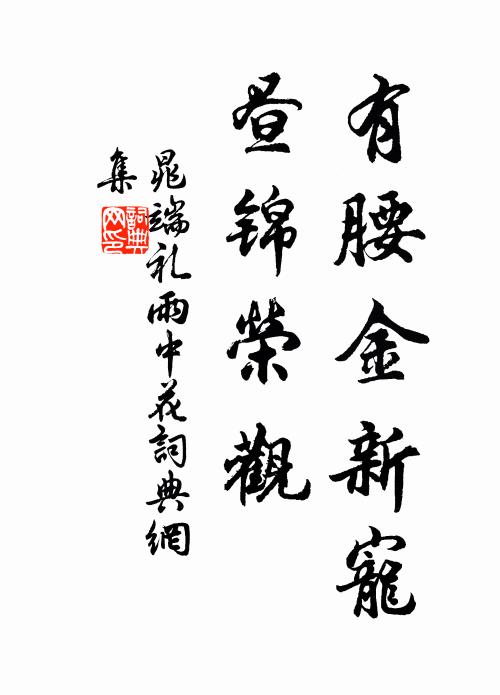 有腰金新寵
昼錦榮觀
晁端礼雨中花詞典網
集
詞典
网印